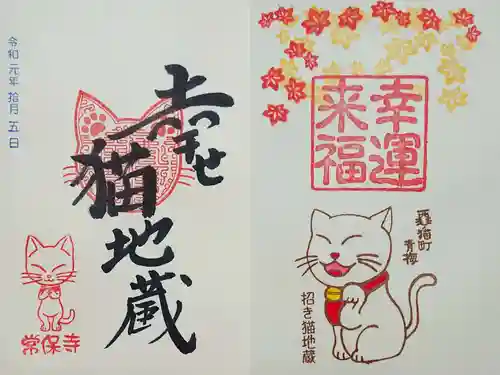 令和元年拾月五日
幸せ
猫地蔵
常保寺
幸運
来福
昭和猫町
青梅
招き猫地蔵